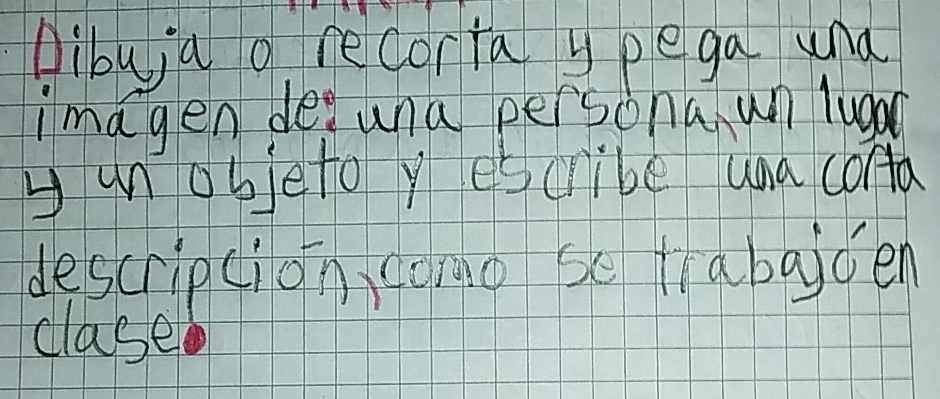 Dibuja o recorta y pega una
imágen de: una persona, un lugar
y un objeto y escribe una corta
descripción, como se trabajó en
clase.